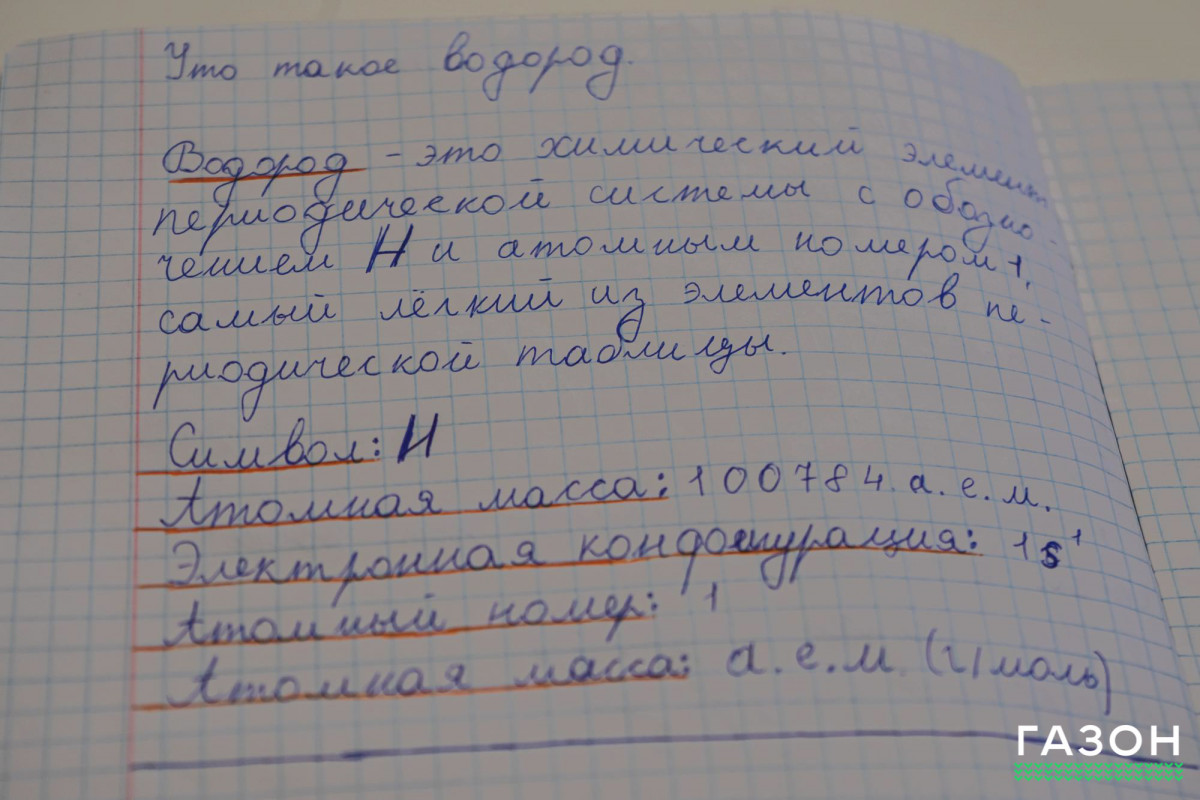 Что такое водород.
Водород - это химический элемент
периодической системы с обозно-
чением H и атомным номером 1,
самый лёгкий из элементов пе-
риодической таблицы.
Символ: H
Атомная масса: 100784 а.е.м.
Электронная конфигурация: 1s¹
Атомный номер: 1
Атомная масса: а.е.м. (г/моль)
ГАЗОН